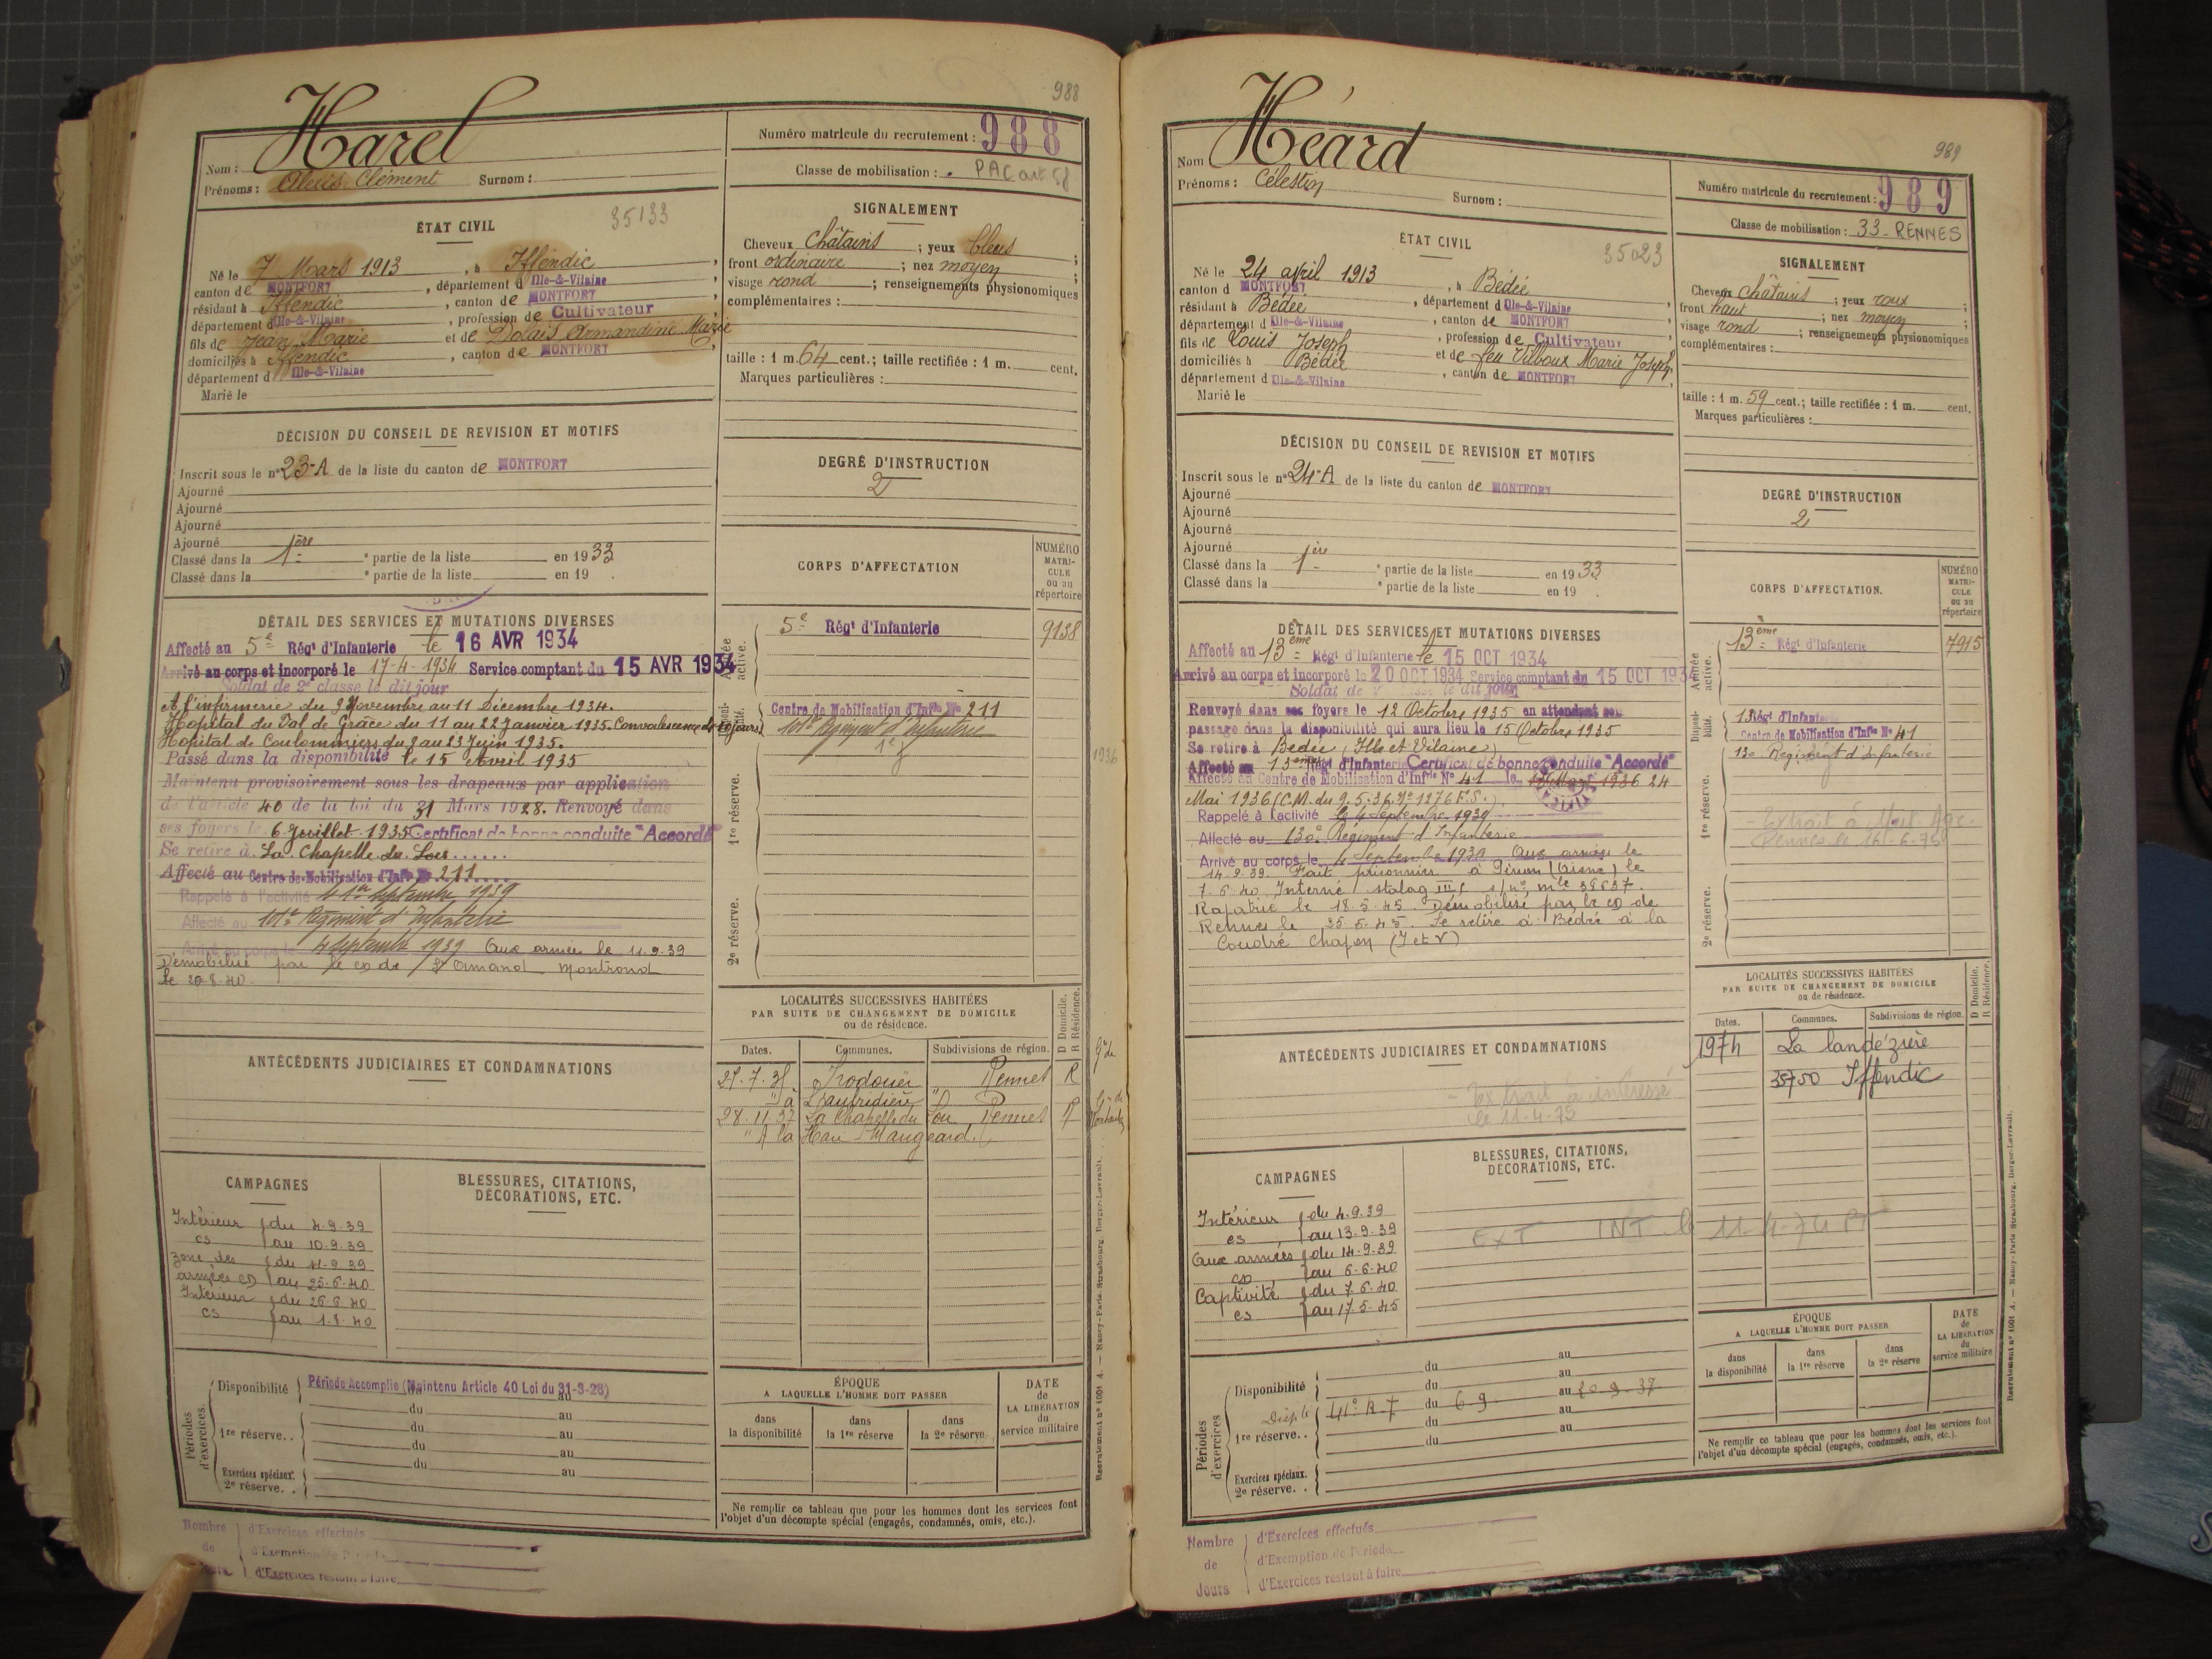 988
Nom : Harel
Prénoms : Alexis Clément Surnom :
Numéro matricule du recrutement : 988
Classe de mobilisation : PAC art 58
ÉTAT CIVIL
35133
Né le 7 Mars 1913, à Iffendic,
canton de MONTFORT, département d Ille-&-Vilaine
résidant à Iffendic, canton de MONTFORT,
département d Ille-&-Vilaine, profession de Cultivateur
fils de Jean Marie et de Dolais Armandine Marie
domiciliés à Iffendic, canton de MONTFORT,
département d Ille-&-Vilaine
Marié le
SIGNALEMENT
Cheveux châtains ; yeux bleus ;
front ordinaire ; nez moyen ;
visage rond ; renseignements physionomiques
complémentaires :
taille : 1 m. 64 cent.; taille rectifiée : 1 m. cent.
Marques particulières :
DÉCISION DU CONSEIL DE REVISION ET MOTIFS
Inscrit sous le n° 23-A de la liste du canton de MONTFORT
Ajourné
Ajourné
Ajourné
Ajourné
Classé dans la 1ère e partie de la liste en 1933
Classé dans la e partie de la liste en 19 .
DEGRÉ D'INSTRUCTION
2
CORPS D'AFFECTATION
NUMÉRO MATRI-CULE ou au répertoire
Armée active.
5e Régt d'Infanterie 9138
Disponi-bilité.
Centre de Mobilisation d'Infie N° 211
101e Régiment d'Infanterie
1936
1re réserve.
2e réserve.
DÉTAIL DES SERVICES ET MUTATIONS DIVERSES
Affecté au 5e Régt d'Infanterie le 16 AVR 1934
Arrivé au corps et incorporé le 17-4-1934 Service comptant du 15 AVR 1934
Soldat de 2e classe le dit jour
A l'infirmerie du 9 Novembre au 11 Décembre 1934.
Hopital du Val de Grâce du 11 au 22 Janvier 1935. Convalescence de 20 jours
Hopital de Coulommiers du 2 au 23 Juin 1935.
Passé dans la disponibilité le 15 Avril 1935
Maintenu provisoirement sous les drapeaux par application
de l'article 40 de la loi du 31 Mars 1928. Renvoyé dans
ses foyers le 6 Juillet 1935 Certificat de bonne conduite "Accordé"
Se retire à La Chapelle du Lou
Affecté au Centre de Mobilisation d'Infie N° 211
Rappelé à l'activité le 1er Septembre 1939
Affecté au 101e Régiment d'Infanterie
Arrivé au corps le 4 Septembre 1939 Aux armées le 11.9.39
Démobilisé par le CD de St Amand Montrond
le 20.8.40.
LOCALITÉS SUCCESSIVES HABITÉES
PAR SUITE DE CHANGEMENT DE DOMICILE
ou de résidence.
Dates. Communes. Subdivisions de région. D Domicile. R Résidence.
25.7.35 Irodouër Rennes R
28.11.37 La Chapelle du Lou Rennes R
ANTÉCÉDENTS JUDICIAIRES ET CONDAMNATIONS
CAMPAGNES
Intérieur du 4.9.39
CS au 10.9.39
Zone des du 11.9.39
armées CD au 25.6.40
Intérieur du 26.6.40
CS au 1.8.40
BLESSURES, CITATIONS,
DÉCORATIONS, ETC.
Périodes d'exercices.
Disponibilité Période Accomplie (Maintenu Article 40 Loi du 31-3-28)
du au
1re réserve. . du au
du au
du au
Exercices spéciaux.
2e réserve. . au
ÉPOQUE
A LAQUELLE L'HOMME DOIT PASSER
dans la disponibilité
dans la 1re réserve
dans la 2e réserve
DATE de LA LIBÉRATION du service militaire
Ne remplir ce tableau que pour les hommes dont les services font
l'objet d'un décompte spécial (engagés, condamnés, omis, etc.).
Nombre de Jours
d'Exercices effectués
d'Exemption de Période
d'Exercices restant à faire
Recrutement n° 1001 A. — Nancy-Paris-Strasbourg, Berger-Levrault.
989
Nom Héard
Prénoms : Célestin Surnom :
Numéro matricule du recrutement : 989
Classe de mobilisation : 33 - RENNES
ÉTAT CIVIL
35023
Né le 24 avril 1913, à Bédée
canton d MONTFORT, département d Ille-&-Vilaine
résidant à Bédée, canton de MONTFORT
département d Ille-&-Vilaine, profession de Cultivateur
fils de Louis Joseph et de feu Vilboux Marie Joseph
domiciliés à Bédée, canton de MONTFORT
département d Ille-&-Vilaine
Marié le
SIGNALEMENT
Cheveux châtains ; yeux roux ;
front haut ; nez moyen ;
visage rond ; renseignements physionomiques
complémentaires :
taille : 1 m. 59 cent.; taille rectifiée : 1 m. cent.
Marques particulières :
DÉCISION DU CONSEIL DE REVISION ET MOTIFS
Inscrit sous le n° 24-A de la liste du canton de MONTFORT
Ajourné
Ajourné
Ajourné
Ajourné
Classé dans la 1ère e partie de la liste en 1933
Classé dans la e partie de la liste en 19 .
DEGRÉ D'INSTRUCTION
2
CORPS D'AFFECTATION.
NUMÉRO MATRI-CULE ou au répertoire
Armée active.
13ème Régt d'Infanterie 7915
Disponi-bilité.
13 Régt d'Infanterie
Centre de Mobilisation d'Infie N° 41
130 Régiment d'Infanterie
1re réserve.
2e réserve.
DÉTAIL DES SERVICES ET MUTATIONS DIVERSES
Affecté au 13ème Régt d'Infanterie le 15 OCT 1934
Arrivé au corps et incorporé le 20 OCT 1934 Service comptant du 15 OCT 1934
Soldat de 2e classe le dit jour
Renvoyé dans ses foyers le 12 Octobre 1935 en attendant son
passage dans la disponibilité qui aura lieu le 15 Octobre 1935
Se retire à Bédée (Ille et Vilaine)
Affecté au 13ème Régt d'Infanterie Certificat de bonne conduite "Accordé"
Affecté au Centre de Mobilisation d'Infie N° 41 le 1936 24
Mai 1936 (C.M. du 9.5.36. N° 1276 F.S.)
Rappelé à l'activité le 4 Septembre 1939
Affecté au 130e Régiment d'Infanterie
Arrivé au corps le 4 Septembre 1939 Aux armées le
14.9.39. Fait prisonnier à (Aisne) le
7.6.40. Interné stalag s/ n° mle 38637.
Rapatrié le 18.5.45. Démobilisé par le CD de
Rennes le 25.5.45. Se retire à Bédée à la
Coudré Chapon (I et V)
LOCALITÉS SUCCESSIVES HABITÉES
PAR SUITE DE CHANGEMENT DE DOMICILE
ou de résidence.
Dates. Communes. Subdivisions de région. D Domicile. R Résidence.
1974 La landézière
35750 Iffendic
ANTÉCÉDENTS JUDICIAIRES ET CONDAMNATIONS
- Extrait à intéressé
le 11-4-75
CAMPAGNES
Intérieur du 4.9.39
CS au 13.9.39
Aux armées du 14.9.39
CD au 6.6.40
Captivité du 7.6.40
CS au 17.5.45
BLESSURES, CITATIONS,
DÉCORATIONS, ETC.
EXT INT le 11 4-74
Périodes d'exercices
Disponibilité du au
du au
41e R I du 6-9 au 20-9-37
1re réserve. . du au
du au
Exercices spéciaux.
2e réserve. .
ÉPOQUE
A LAQUELLE L'HOMME DOIT PASSER
dans la disponibilité
dans la 1re réserve
dans la 2e réserve
DATE de LA LIBÉRATION du service militaire
Ne remplir ce tableau que pour les hommes dont les services font
l'objet d'un décompte spécial (engagés, condamnés, omis, etc.).
Nombre de Jours
d'Exercices effectués
d'Exemption de Période
d'Exercices restant à faire
Recrutement n° 1001 A. — Nancy-Paris-Strasbourg, Berger-Levrault.